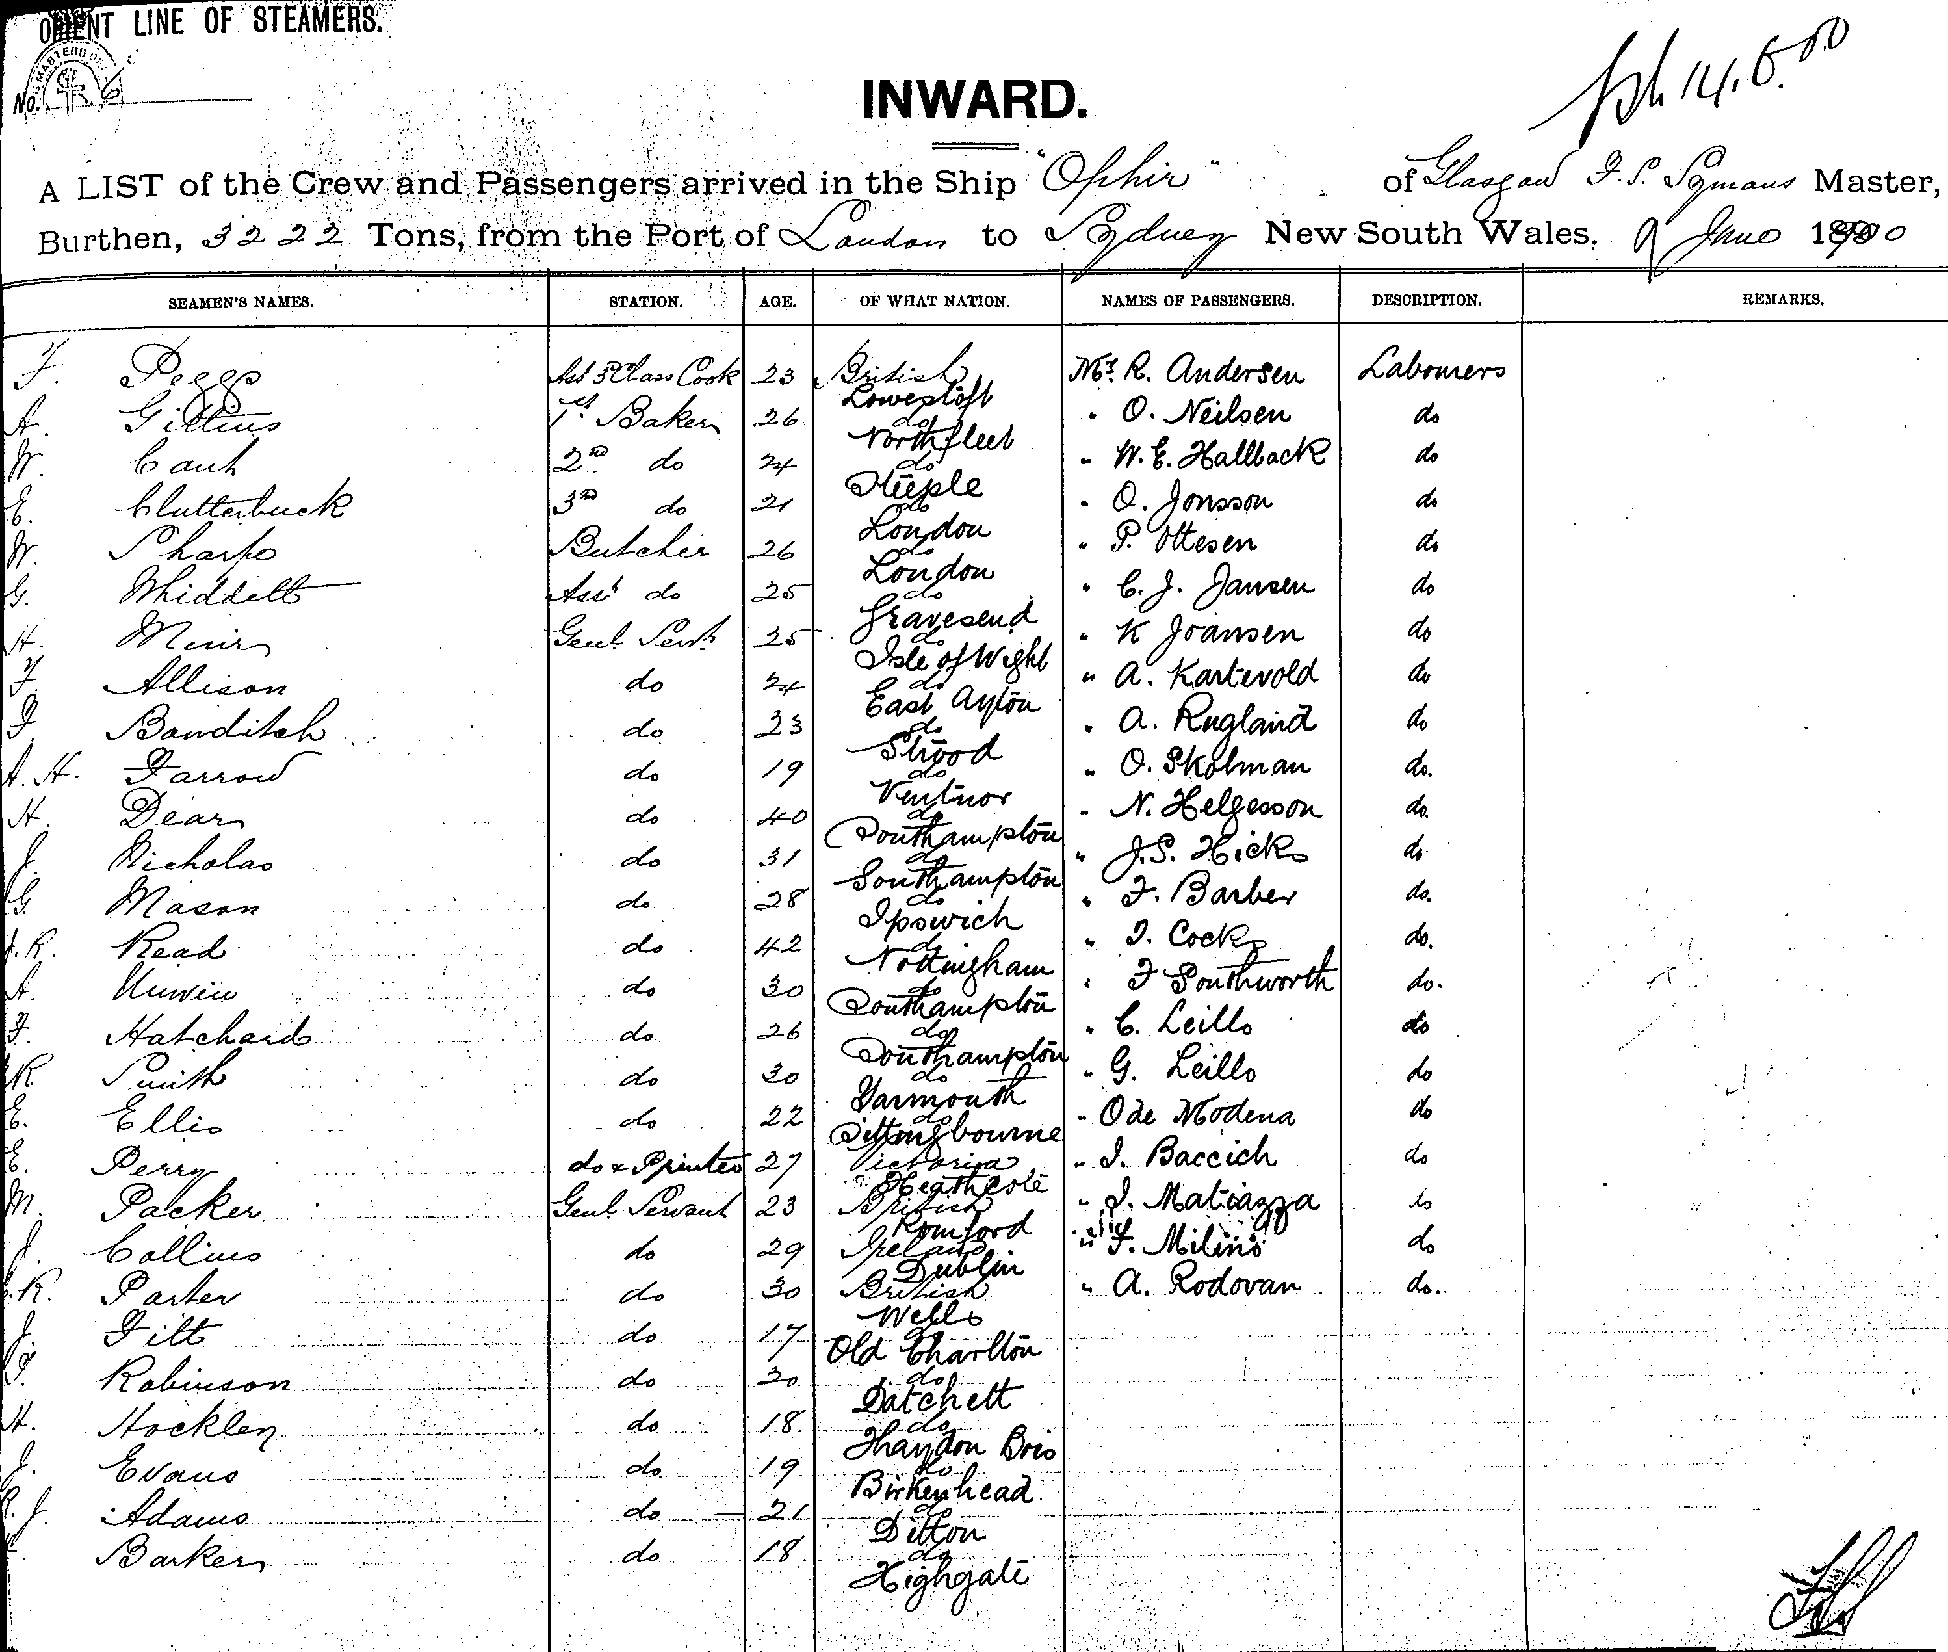 ORIENT LINE OF STEAMERS.
No. 6
INWARD.
14.6.00
A LIST of the Crew and Passengers arrived in the Ship "Ophir" of Glasgow Master,
Burthen, 3222 Tons, from the Port of London to Sydney New South Wales, 9 June 1900
SEAMEN'S NAMES. STATION. AGE. OF WHAT NATION. NAMES OF PASSENGERS. DESCRIPTION. REMARKS.
F. Peggs Asst 3rd Class Cook 23 British Mr. R. Andersen Labourers
Lowestoft
A. Gittins 1st Baker 26 do " O. Neilsen do
Northfleet
W. Cant 2nd do 24 do " W. E. Hallback do
Steeple
E. Clutterbuck 3rd do 21 do " O. Jonsson do
London
W. Sharpe Butcher 26 do " P. Ottesen do
London
G. Whiddett Asst do 25 do " C. J. Jansen do
Gravesend
H. Muir Genl. Servt. 25 do " K Joansen do
Isle of Wight
F. Allison do 24 do " A. Kartevold do
East Ayton
F. Banditch do 23 do " A. Rugland do
Strood
A. H. Farrow do 19 do " O. Skolman do.
Ventnor
H. Dear do 40 do " N. Helgesson do.
Southampton
J. Nicholas do 31 do " J. S. Hicks do
Southampton
G. Mason do 28 do " F. Barber do.
Ipswich
R. Read do 42 do " J. Cocks do.
Nottingham
A. Unwin do 30 do " F Southworth do.
Southampton
F. Hatchard do 26 do " C. Leillo do
Southampton
R. Smith do 30 do " G. Leillo do
Yarmouth
E. Ellis do 22 do " Ode Modena do
Sittingbourne
E. Perry do & Printer 27 Victoria " I. Baccich do
Heathcote
M. Packer Genl. Servant 23 British " I. Matiazza do
Romford
J. Collins do 29 Ireland " F. Milins do
Dublin
R. Porter do 30 British " A. Rodovan do.
Wells
J. Tilt do 17 do
Old Charlton
Robinson do 30 do
Datchett
H. Hockley do 18 do
Haydon
J. Evans do 19 do
Birkenhead
J. Adams do 21 do
Ditton
Barker do 18 do
Highgate